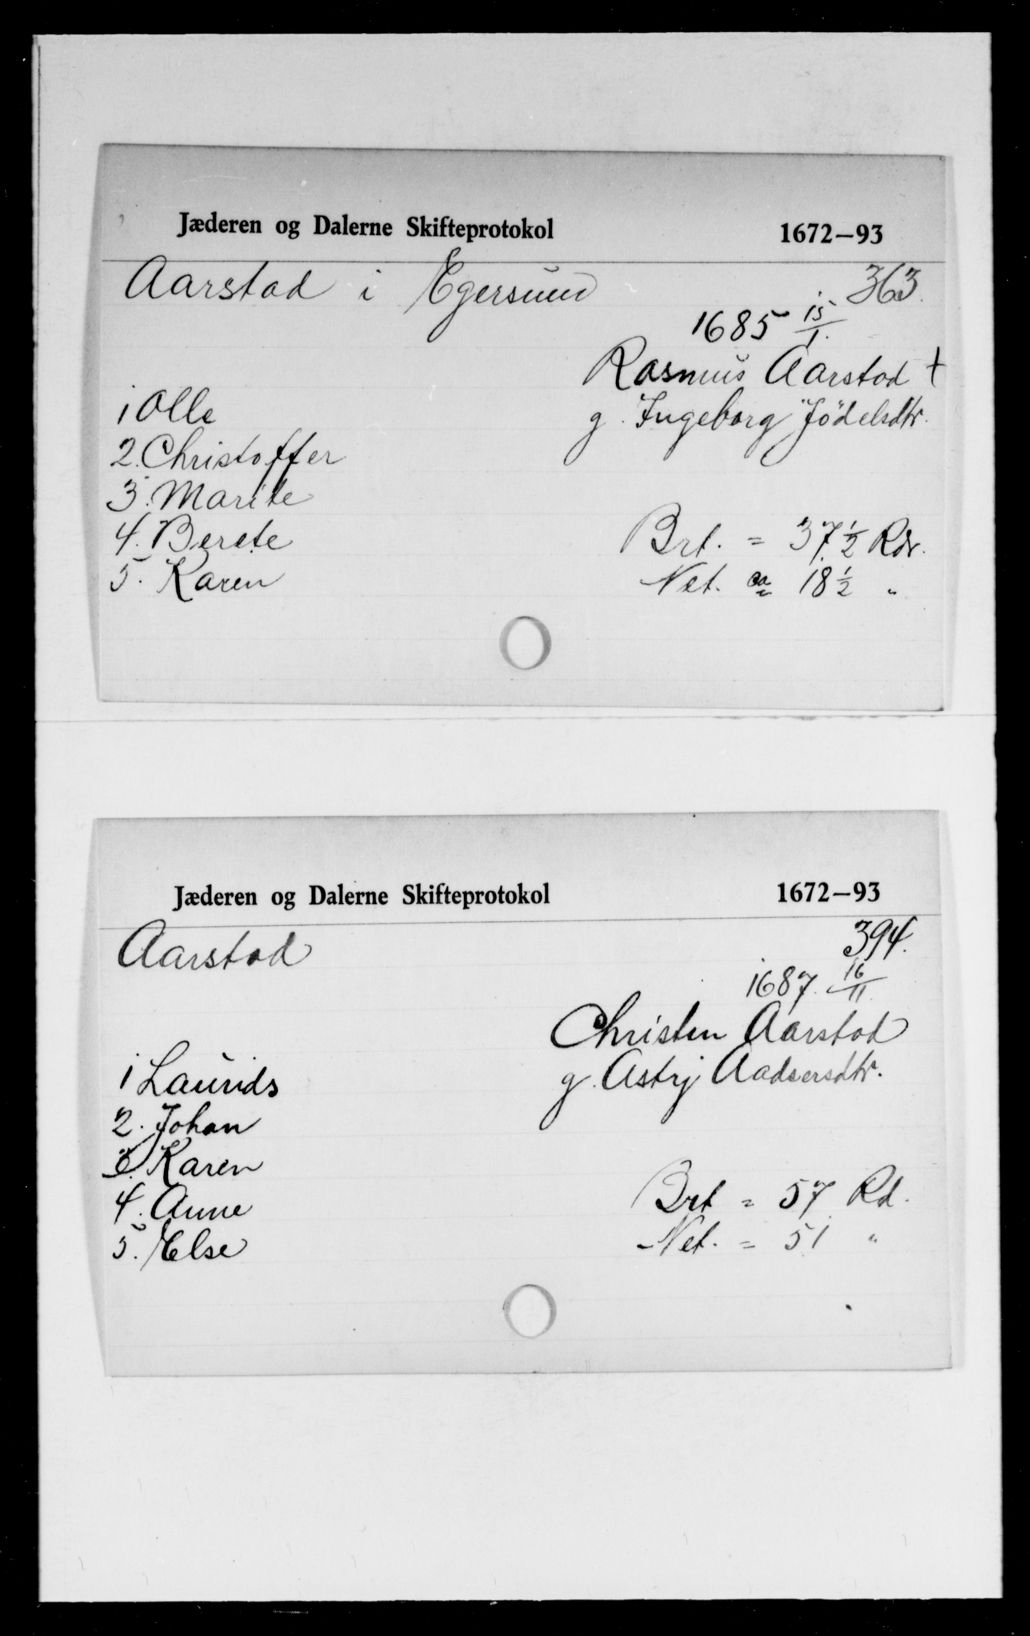 Jæderen og Dalerne Skifteprotokol 1672–93
Aarstad i Egersund 363.
1685 15/1.
Rasmus Aarstad †
1 Olle
g. Ingeborg Jødelsdtr.
2. Christoffer
3. Marite
4. Berete
Brt. = 37 1/2 Rdr.
5. Karen
Net. ca 18 1/2 "
Jæderen og Dalerne Skifteprotokol 1672–93
Aarstad 394.
1687. 16/11.
Christen Aarstad
1 Laurids
g. Astrj Aadsersdtr.
2. Johan
3. Karen
4. Anne
Brt = 57 Rd.
5. Else
Net. = 51 "